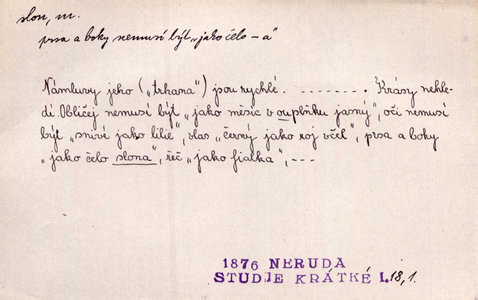 slon, m.
prsa a boky nemusí být „jako čelo –a“
Námluvy jeho („trhana“) jsou rychlé. - - - - - - - - Krásy nehle-
dí. Obličej nemusí být „jako měsíc v ouplňku jasný“, oči nemusí
být „snivé jako lilie“, vlas „černý jako roj včel“, prsa a boky
„jako čelo slona“, řeč „jako fialka“, - - -
1876 NERUDA
STUDJE KRÁTKÉ I. 18,1.